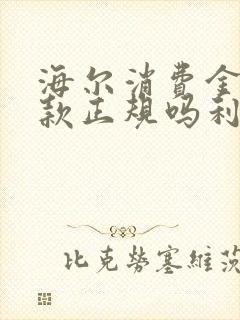 海尔消费金
款正规吗利
比克勞塞維茨